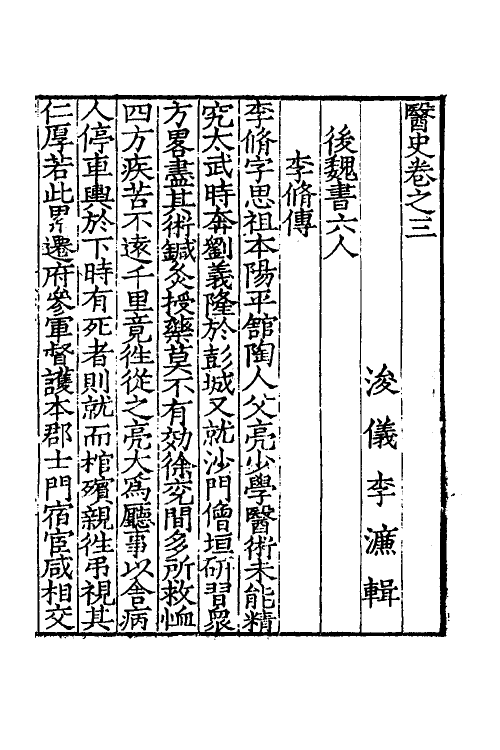 醫史卷之三
浚儀李濂輯
後魏書六人
李脩傳
李脩字思祖本陽平舘陶人父亮少學醫術未能精
究太武時奔劉義隆於彭城又就沙門僧垣研習衆
方畧盡其術鍼灸授藥莫不有効徐兖間多所救恤
四方疾苦不逺千里竟徃從之亮大為廳事以舎病
人停車輿於下時有死者則就而棺殯親徃弔視其
仁厚若此累遷府參軍督護本郡士門宿官咸相交